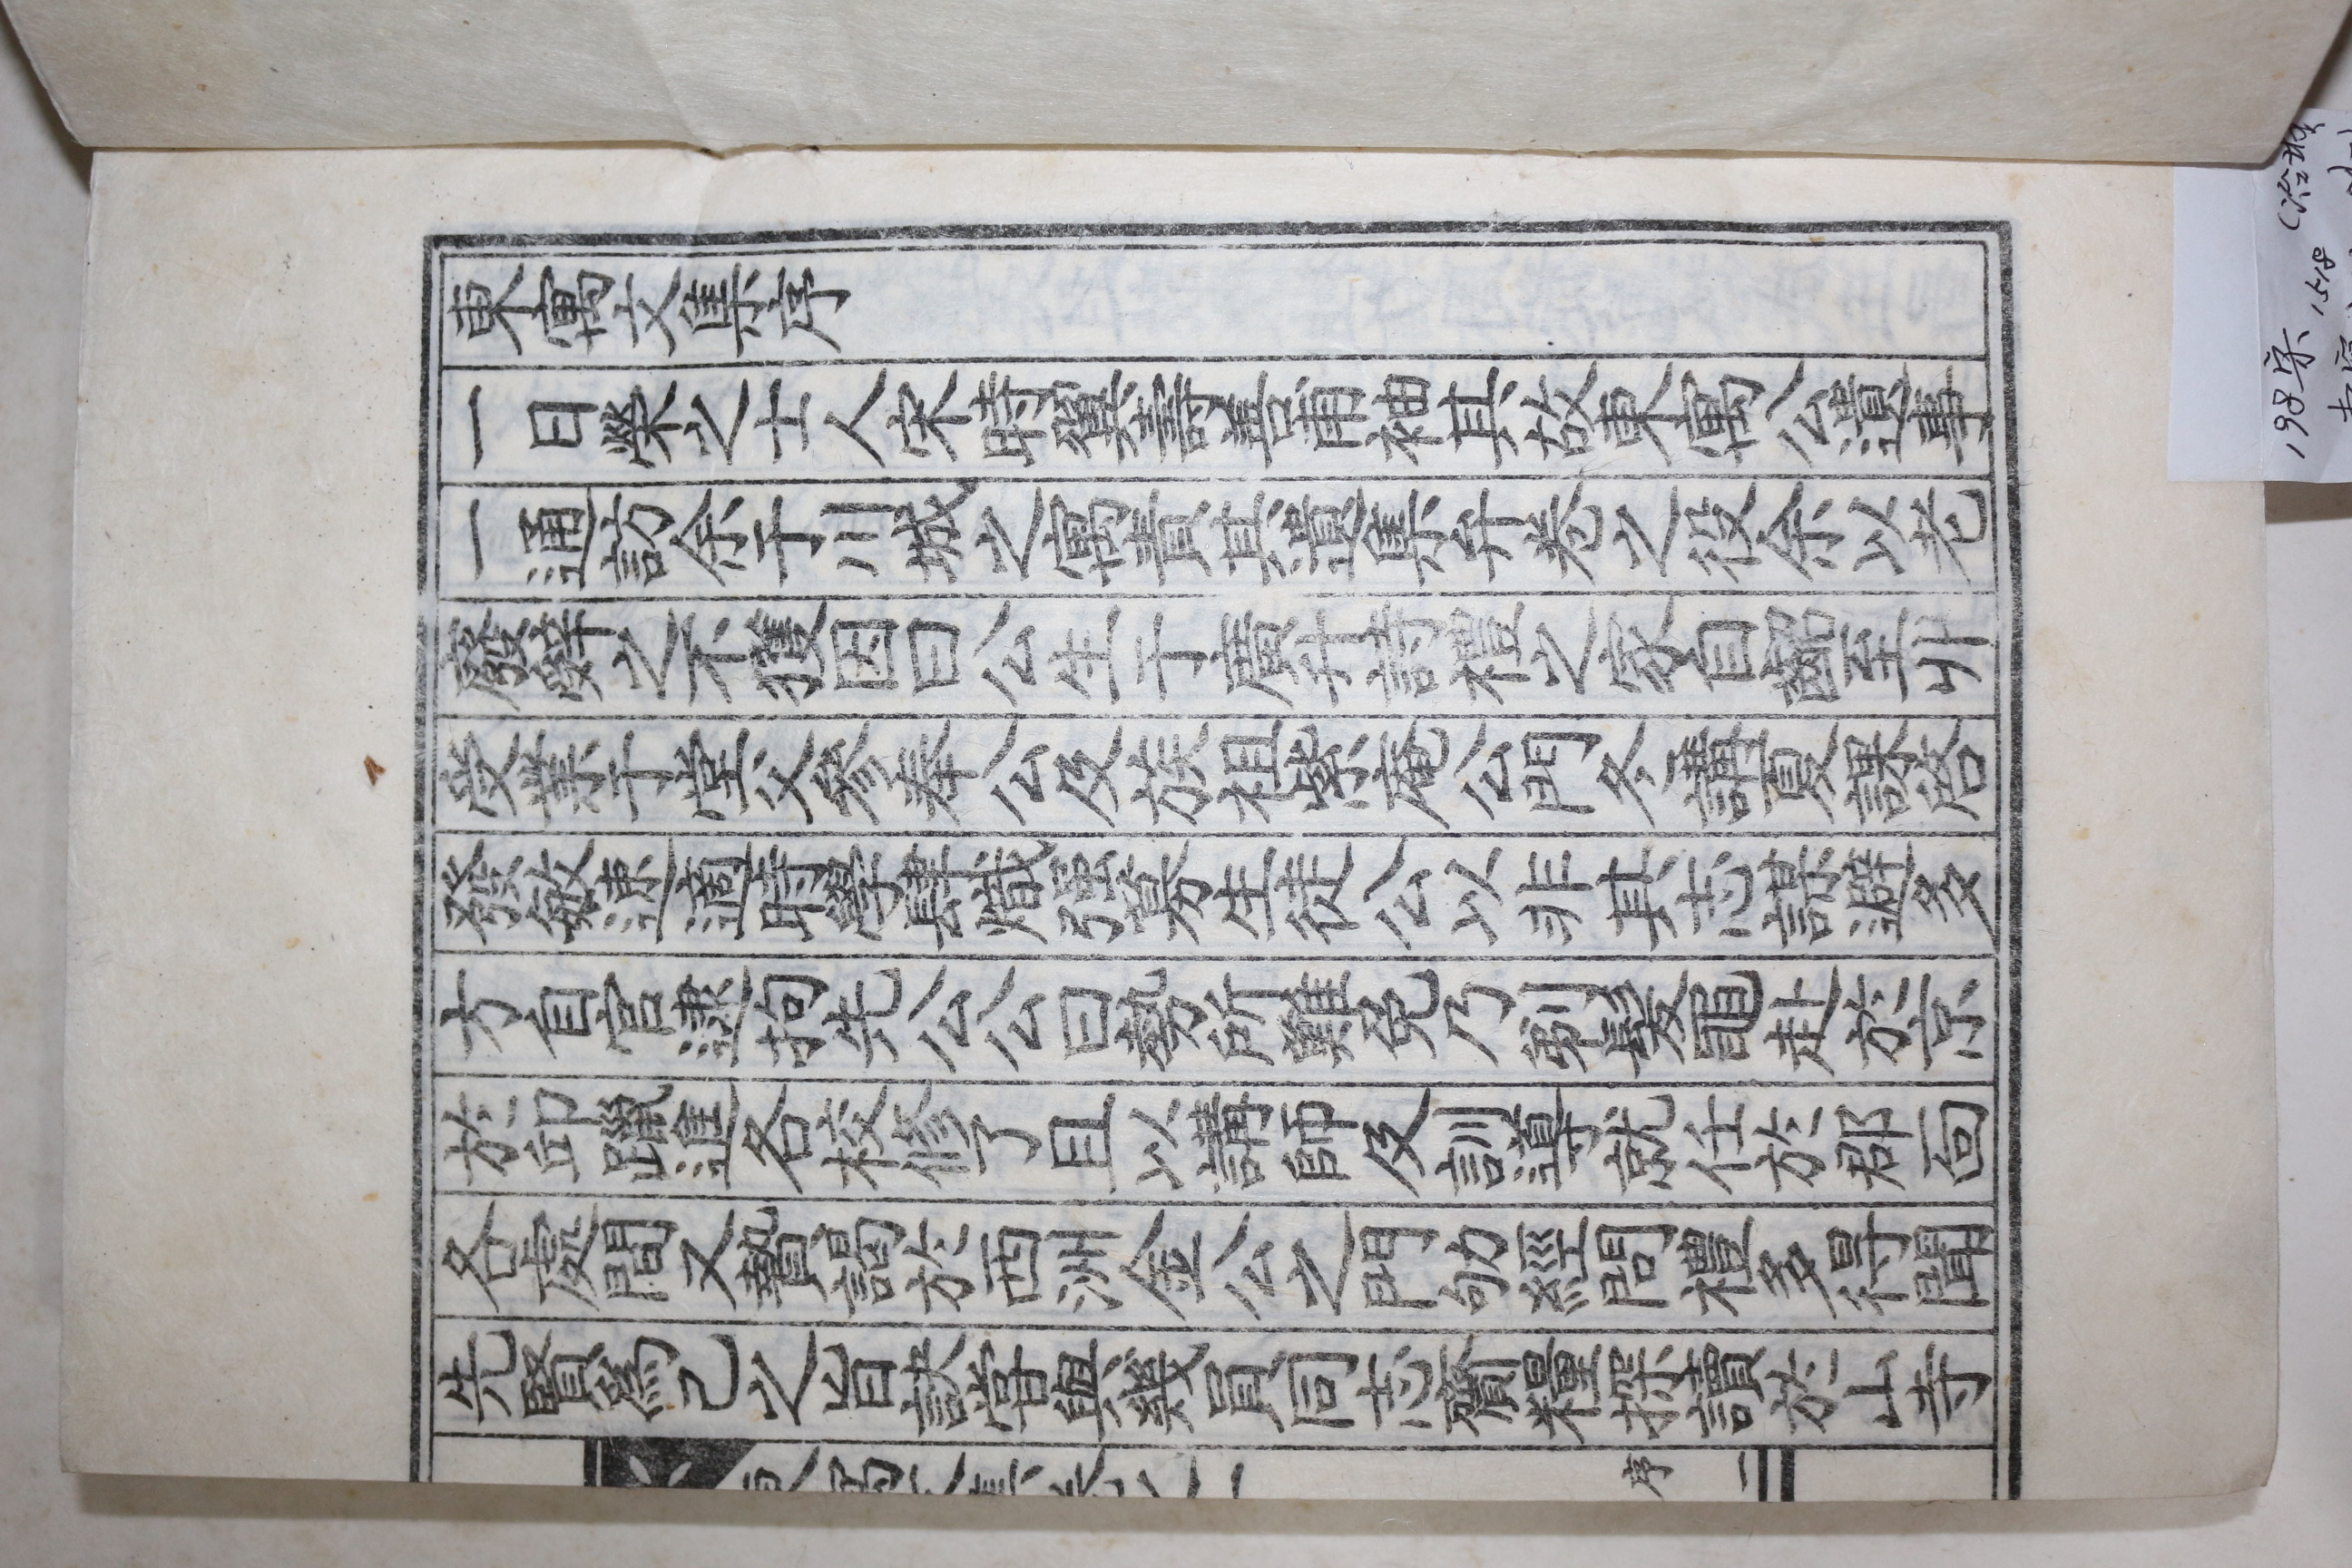 東寓文集序
一日榮之士人宋時翼壽善甫袖其故東寓公遺事
一通訪余于川城之寓責其遺集弁卷之役余以老
廢辭之不獲因曰公生于廣升詩禮之家自齠至丱
受業于堂父參奉公及族祖紫庵公門冬講夏課啓
發敏速適時學肆熾强募生徒公以非其志謀避多
方自官逮拘先公公曰勢所難免乃剃髮黽赴於京
於卬躐進各校修了且以講師及訓導就任於郡面
各處間又贄謁於西洲金公之門劬經問禮多得聞
先賢爲己之旨訣嘗與幾員同志齎糧探讀於山寺
東寓文集卷之一
序
一
198宋
1518